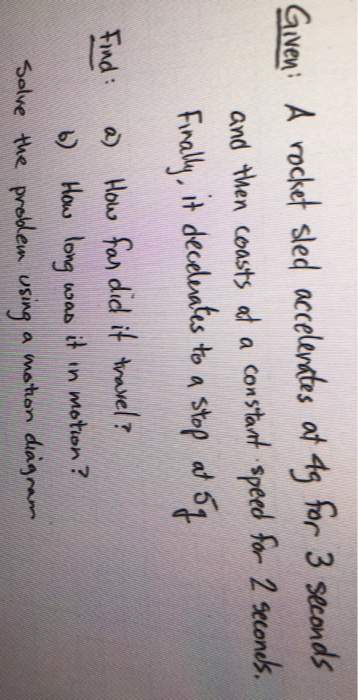 Given: A rocket sled accelerates at 4g for 3 seconds
and then coasts at a constant speed for 2 seconds.
Finally, it decelerates to a stop at 5g
Find: a) How far did it travel?
b) How long was it in motion?
Solve the problem using a motion diagram